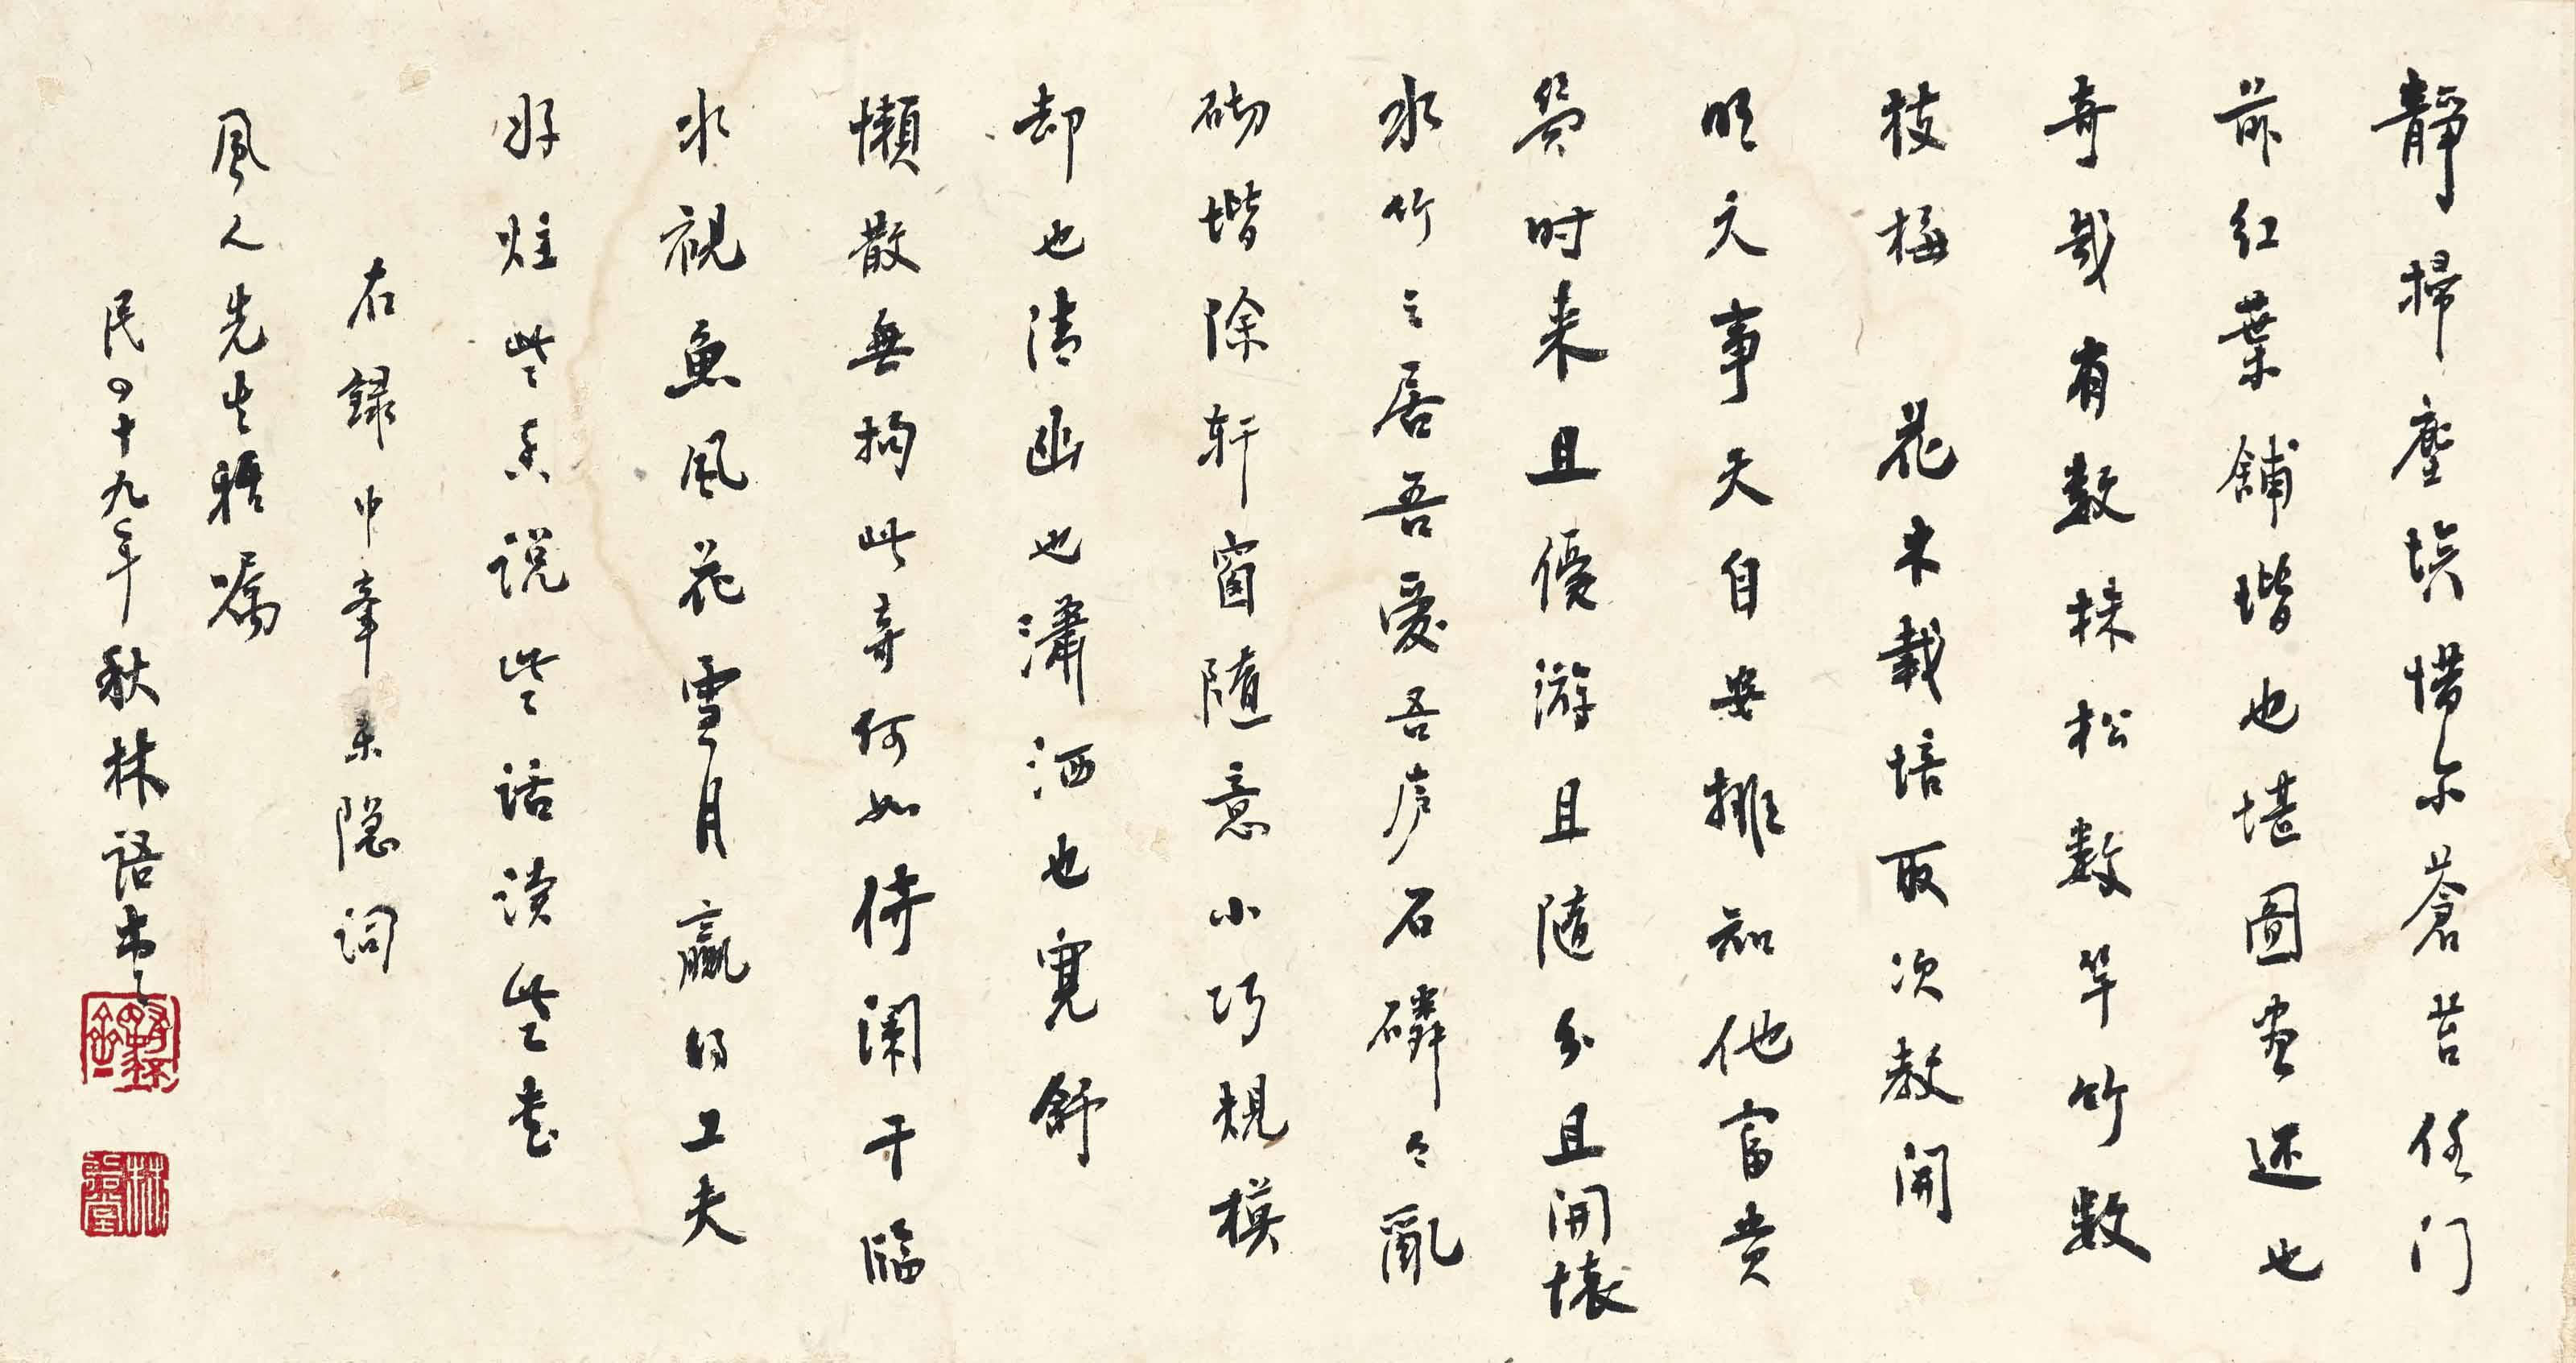 靜掃塵埃惜尔蒼苔任门
前红葉鋪堦也堪圖画还也
奇哉有数株松数竿竹数
枝梅 花木栽培取次教開
明天事天自安排知他富贵
幾时来且優游且随分且開懐
水竹之居吾吾愛吾庐石磷々亂
砌堦除轩窗随意小巧規模
却也清幽也瀟洒也寬舒
懶散無拘此等何如倚阑干臨
水視魚風花雪月贏得工夫
好炷些香说些话读些书
右録中峯樂隐词
風人先生雅嘱
民四十九年秋林语堂
林語堂